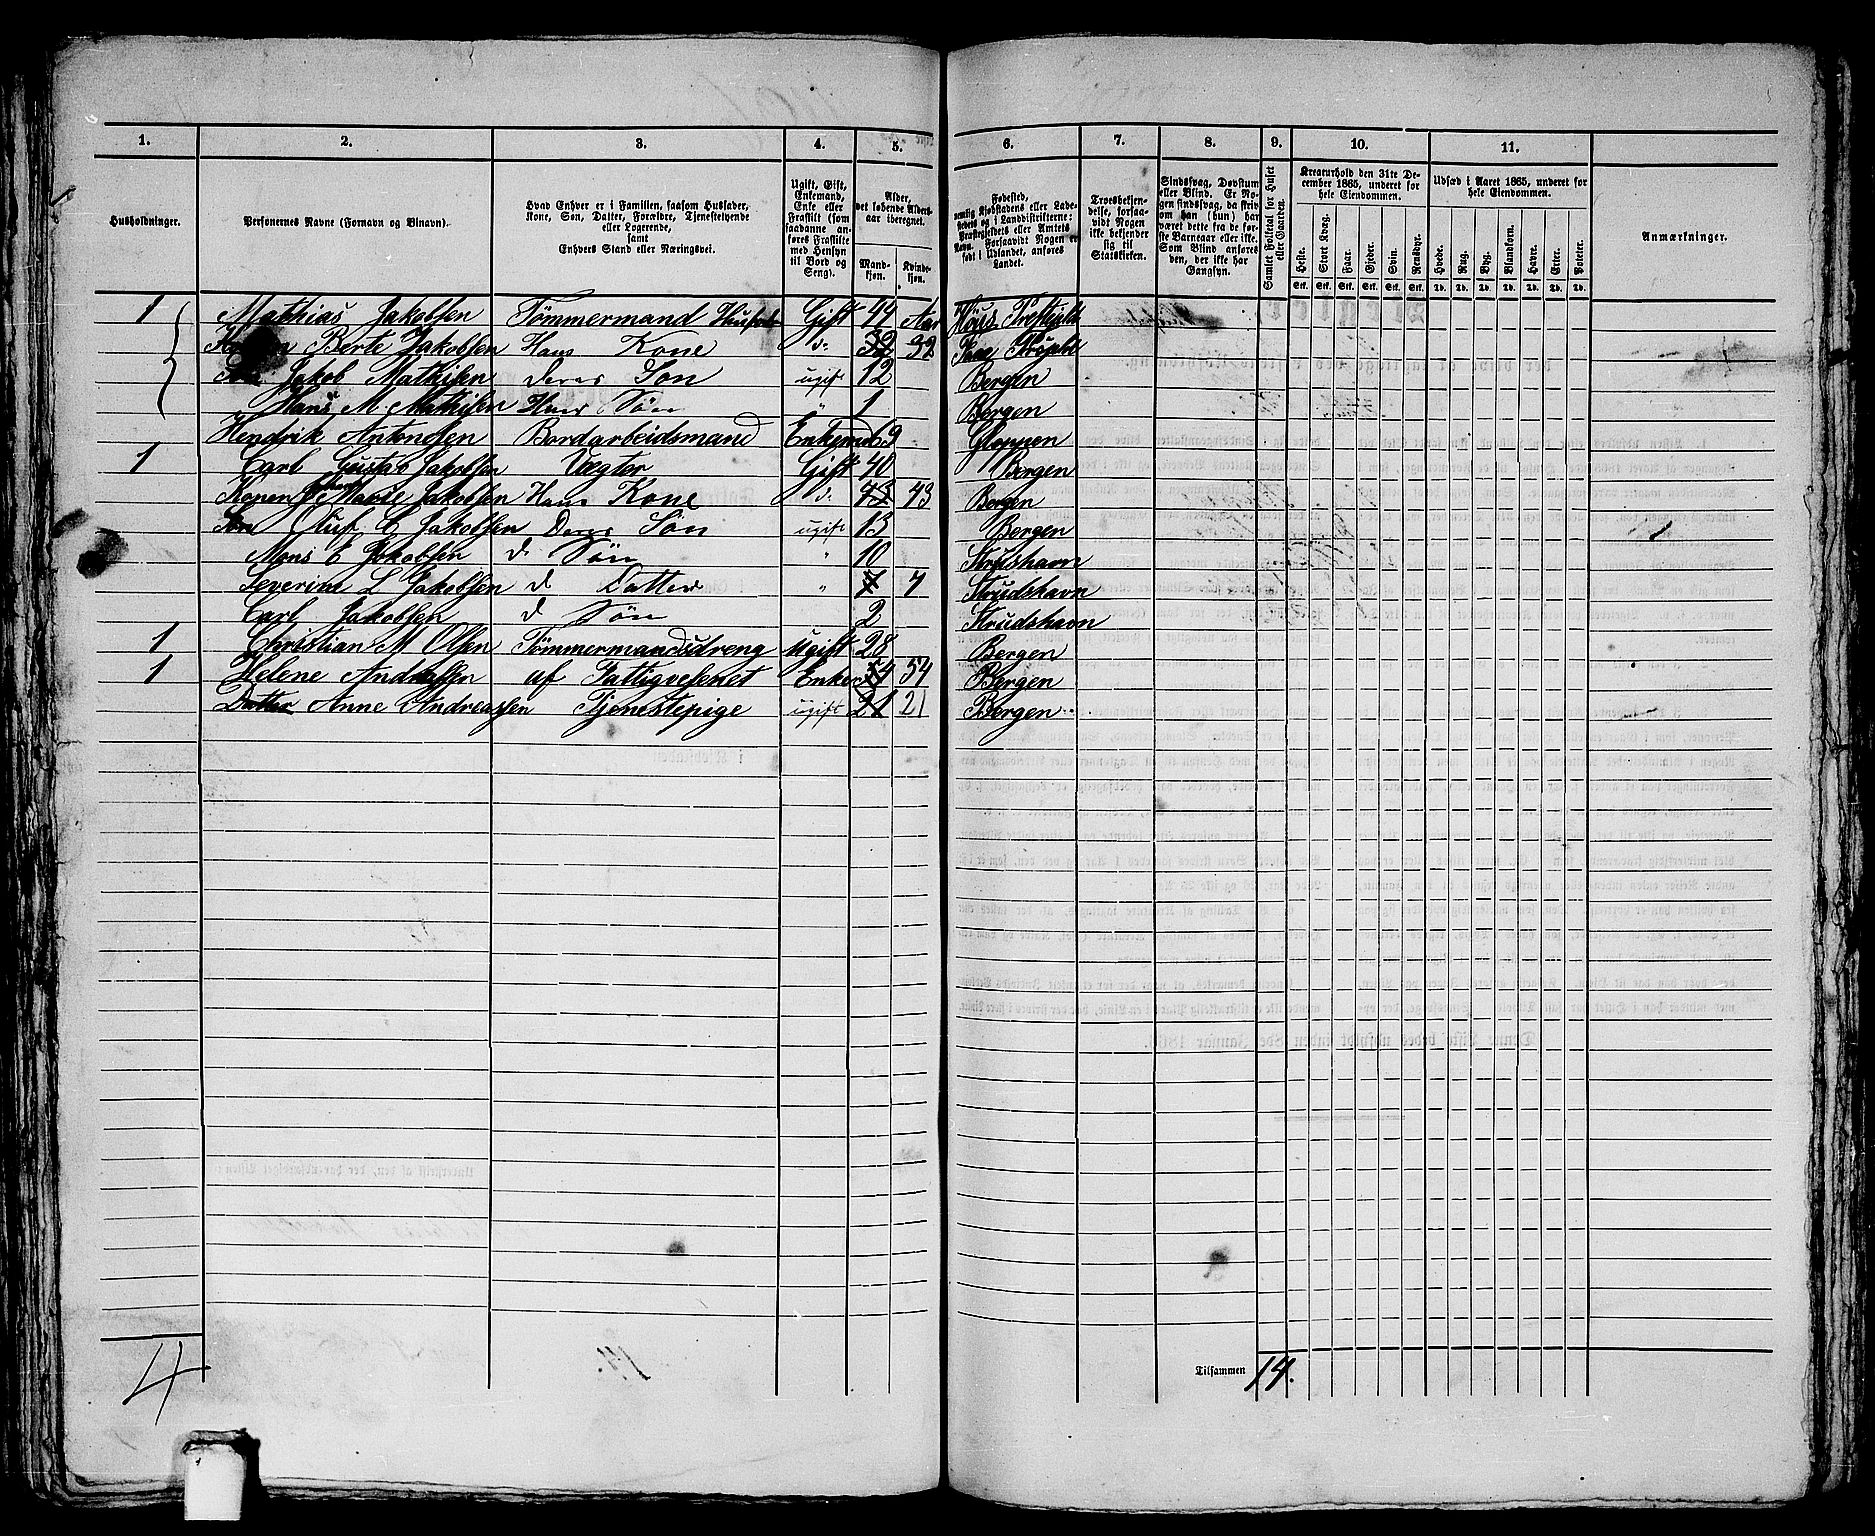 1. 2. 3. 4. 5. 6. 7. 8. 9. 10. 11.
Husholdninger.
Personernes Navne (Fornavn og Binavn).
Hvad Enhver er i Familien, saasom Husfader, Kone, Søn, Datter, Forældre, Tjenestetyende eller Logerende, samt Enhvers Stand eller Næringsvei.
Ugift, Gift, Enkemand, Enke eller Fraskilt (som saadanne anføres Fraskilte med Hensyn til Bord og Seng).
Alder, det løbende Aldersaar iberegnet.
Mandkjøn. Kvindekjøn.
Fødested, nemlig Kjøbstadens eller Ladestedets eller i Landdistrikterne: Præstegjeldets eller Amtets Navn. Forsaavidt Nogen er født i Udlandet, anføres Landet.
Troesbekjendelse, forsaavidt Nogen ikke bekjender sig til Statskirken.
Sindssvag, Døvstum eller Blind. Er Nogen sindssvag, da skrives om han (hun) har været dette fra de første Barneaar eller ikke. Som Blind opføres den, der ikke har Gangsyn.
Samlet Folketal for Huset eller Gaarden.
Kreaturhold den 31te December 1865, underet for hele Eiendommen.
Heste. Stort Kvæg. Faar. Gjeder. Svin. Rensdyr.
Stk. Stk. Stk. Stk. Stk. Stk.
Udsæd i Aaret 1865, underet for hele Eiendommen.
Hvede. Rug. Byg. Blandkorn. Havre. Erter. Poteter.
Td. Td. Td. Td. Td. Td. Td.
Anmærkninger.
1 Mathias Jakobsen Tømmermand Gift 44 Aar
Berte Jakobsen Hans Kone do 32 32
Jakob Mathisen deres Søn ugift 12 Bergen
Hans M Mathisen Søn " 1 Bergen
Hendrik Antonesen Bordarbeidsmand Enkemd 69 Gloppen
1 Carl Gustav Jakobsen Vægter Gift 40 Bergen
Konen Marie Jakobsen Hans Kone do 43 43 Bergen
Søn Oluf C Jakobsen Deres Søn ugift 13 Bergen
Mons E Jakobsen d Søn " 10 Strudshavn
Severine L Jakobsen d Datter " 4 Strudshavn
Carl Jakobsen d Søn 2 Strudshavn
1 Christian M Olsen Tømmermandsdreng ugift 28 Bergen
1 Helene Andreassen af Fattigvesenet Enke 54 54 Bergen
Datter Anne Andreassen Tjenestepige ugift 21 21 Bergen
4
Tilsammen 14.